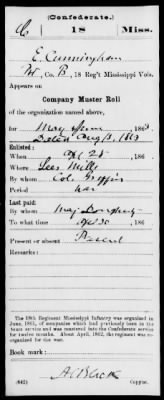 (Confederate.)
C 18 Miss.
E. Cunningham
Pvt, Co. B, 18 Reg't Mississippi Vols.
Appears on
Company Muster Roll
of the organization named above,
for May & June 1863.
Dated Aug 13, 1863
Enlisted:
When 186
Where Lees Mills
By whom Col. Griffin
Period War
Last paid:
By whom Maj.
To what time 186
Present or absent Present
Remarks:
The 18th Regiment Mississippi Infantry was organized in
June, 1861, of companies which had previously been in the
State service and was mustered into the Confederate service
for twelve months. About April, 1862, the regiment was
organized for the war.
Book mark:
(642) Copyist.